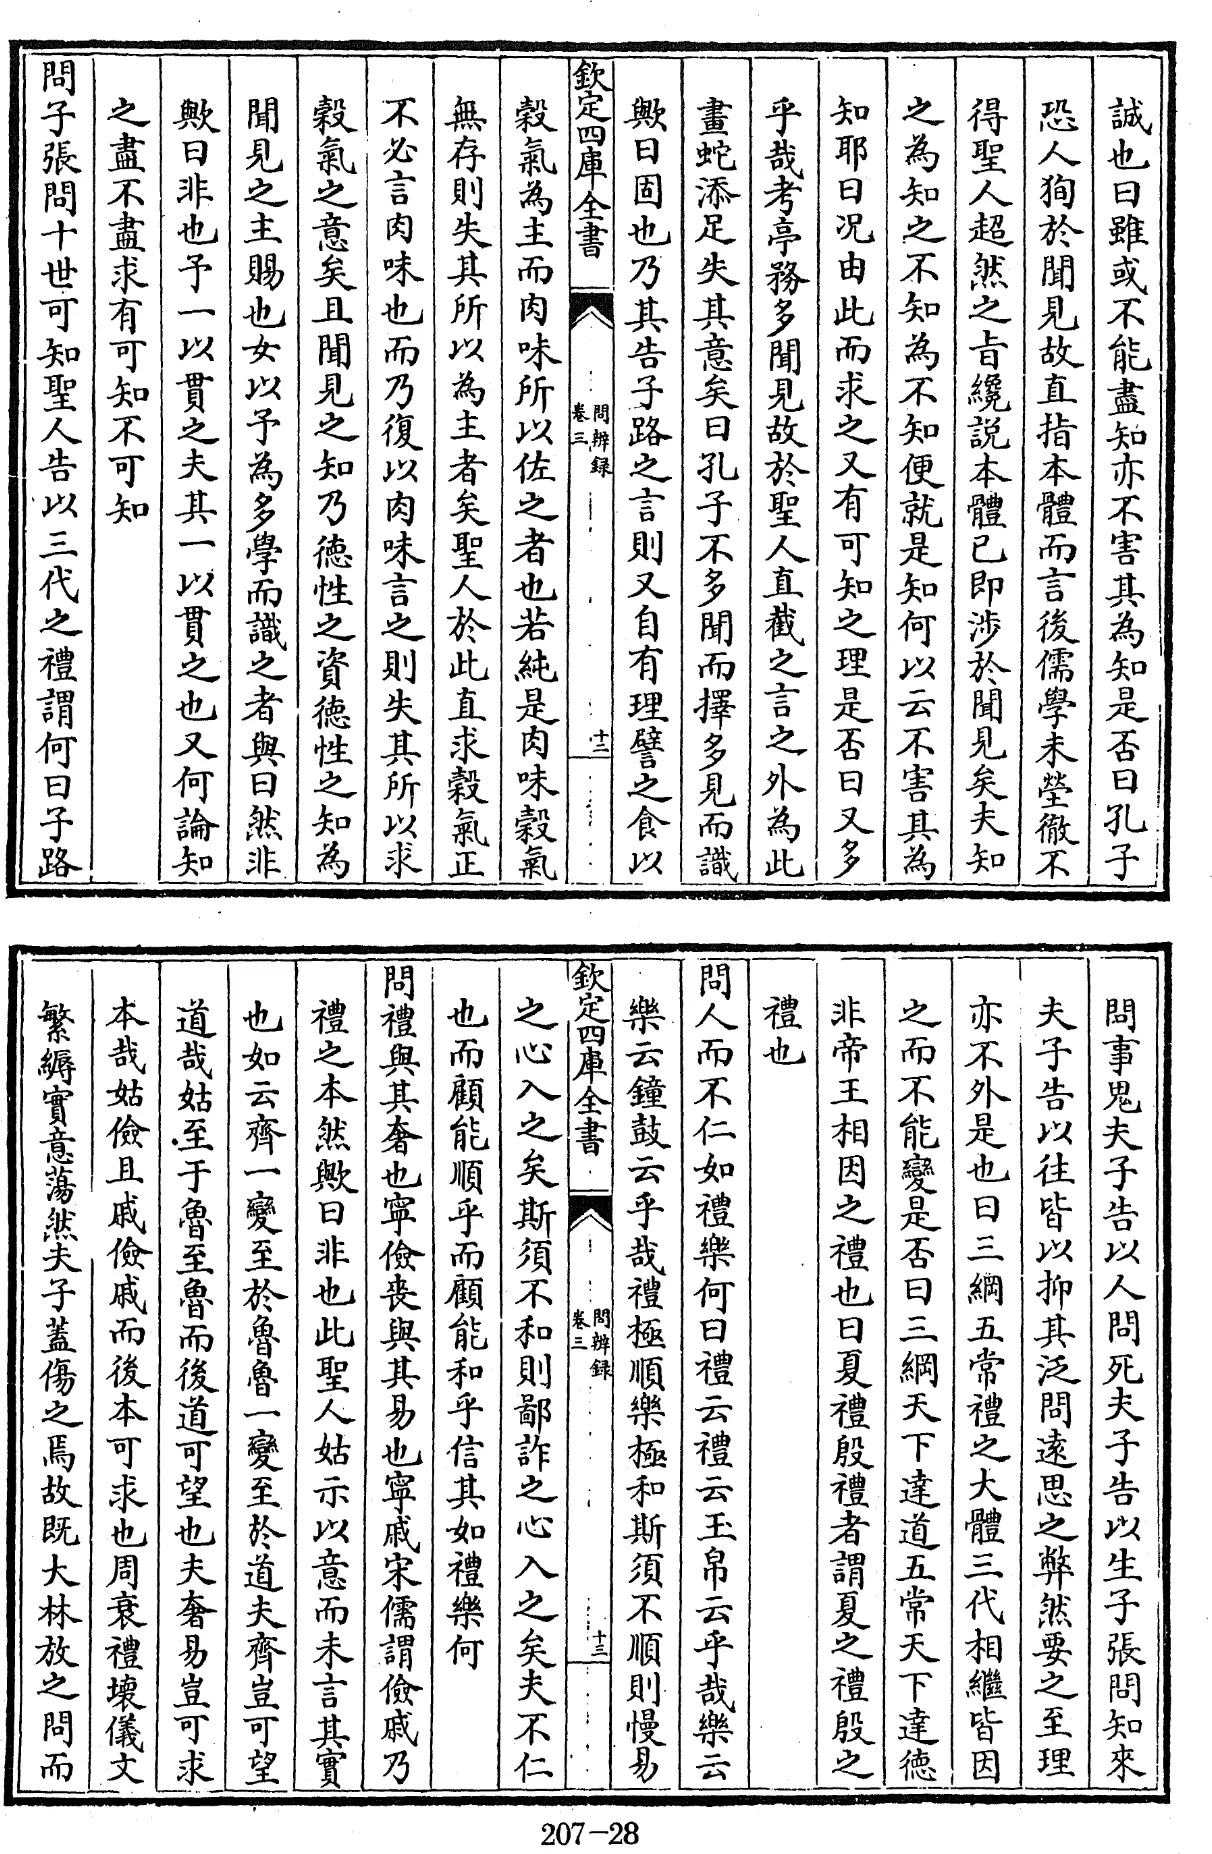 誠也曰雖或不能盡知亦不害其為知是否曰孔子
恐人狥於聞見故直指本體而言後儒學未瑩徹不
得聖人超然之旨纔説本體已即涉於聞見矣夫知
之為知之不知為不知便就是知何以云不害其為
知耶曰况由此而求之又有可知之理是否曰又多
乎哉考亭務多聞見故於聖人直截之言之外為此
畫蛇添足失其意矣曰孔子不多聞而擇多見而識
歟曰固也乃其告子路之言則又自有理譬之食以
欽定四庫全書
問辨録
卷三
十二
穀氣為主而肉味所以佐之者也若純是肉味穀氣
無存則失其所以為主者矣聖人於此直求穀氣正
不必言肉味也而乃復以肉味言之則失其所以求
穀氣之意矣且聞見之知乃德性之資德性之知為
聞見之主賜也女以予為多學而識之者與曰然非
歟曰非也予一以貫之夫其一以貫之也又何論知
之盡不盡求有可知不可知
問子張問十世可知聖人告以三代之禮謂何曰子路
問事鬼夫子告以人問死夫子告以生子張問知來
夫子告以往皆以抑其泛問遠思之弊然要之至理
亦不外是也曰三綱五常禮之大體三代相繼皆因
之而不能變是否曰三綱天下達道五常天下達德
非帝王相因之禮也曰夏禮殷禮者謂夏之禮殷之
禮也
問人而不仁如禮樂何曰禮云禮云玉帛云乎哉樂云
樂云鐘鼓云乎哉禮極順樂極和斯須不順則慢易
欽定四庫全書
問辨録
卷三
十三
之心入之矣斯須不和則鄙詐之心入之矣夫不仁
也而顧能順乎而顧能和乎信其如禮樂何
問禮與其奢也寧儉丧與其易也寧戚宋儒謂儉戚乃
禮之本然歟曰非也此聖人姑示以意而未言其實
也如云齊一變至於魯魯一變至於道夫齊豈可望
道哉姑至于魯至魯而後道可望也夫奢易豈可求
本哉姑儉且戚儉戚而後本可求也周衰禮壞儀文
繁縟實意蕩然夫子蓋傷之焉故既大林放之問而
207-28